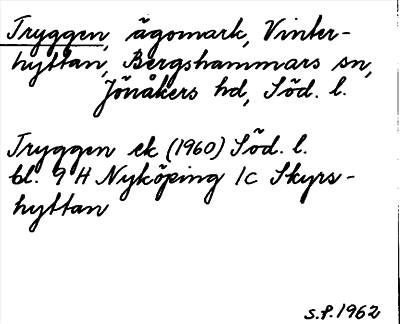 Tryggen, ägomark, Vinter-
hyttan, Bergshammars sn,
Jönåkers hd, Söd. l.
Tryggen ek (1960) Söd. l.
bl. 9 H Nyköping 1c Skyrs-
hyttan
S.P. 1962